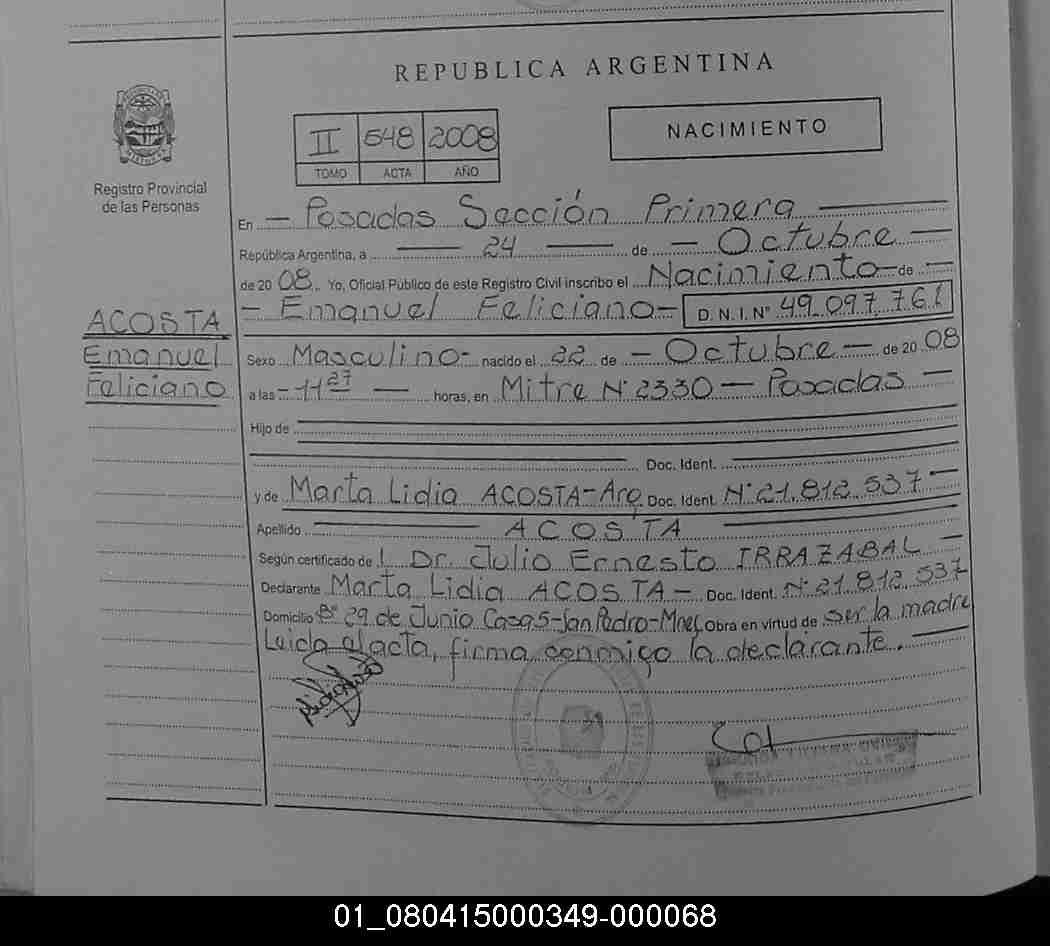 REPUBLICA ARGENTINA
II 548 2008
TOMO ACTA AÑO
NACIMIENTO
Registro Provincial
de las Personas
ACOSTA
Emanuel
Feliciano
En — Posadas Sección Primera —
República Argentina, a — 24 — de — Octubre —
de 20 08. Yo, Oficial Público de este Registro Civil inscribo el Nacimiento — de —
— Emanuel Feliciano — D.N.I. Nº 49.097.761
Sexo Masculino - nacido el 22 de — Octubre — de 20 08
a las - 11 27 — horas, en Mitre Nº 2330 — Posadas —
Hijo de
Doc. Ident.
y de Marta Lidia ACOSTA - Arg. Doc. Ident. Nº 21.812.537 —
Apellido — ACOSTA —
Según certificado de l Dr. Julio Ernesto IRRAZABAL —
Declarante Marta Lidia ACOSTA — Doc. Ident. Nº 21.812.537
Domicilio Bº 29 de Junio Casa 5 - San Pedro - Mnes Obra en virtud de ser la madre
Leida el acta, firma conmigo la declarante. —
01_080415000349-000068